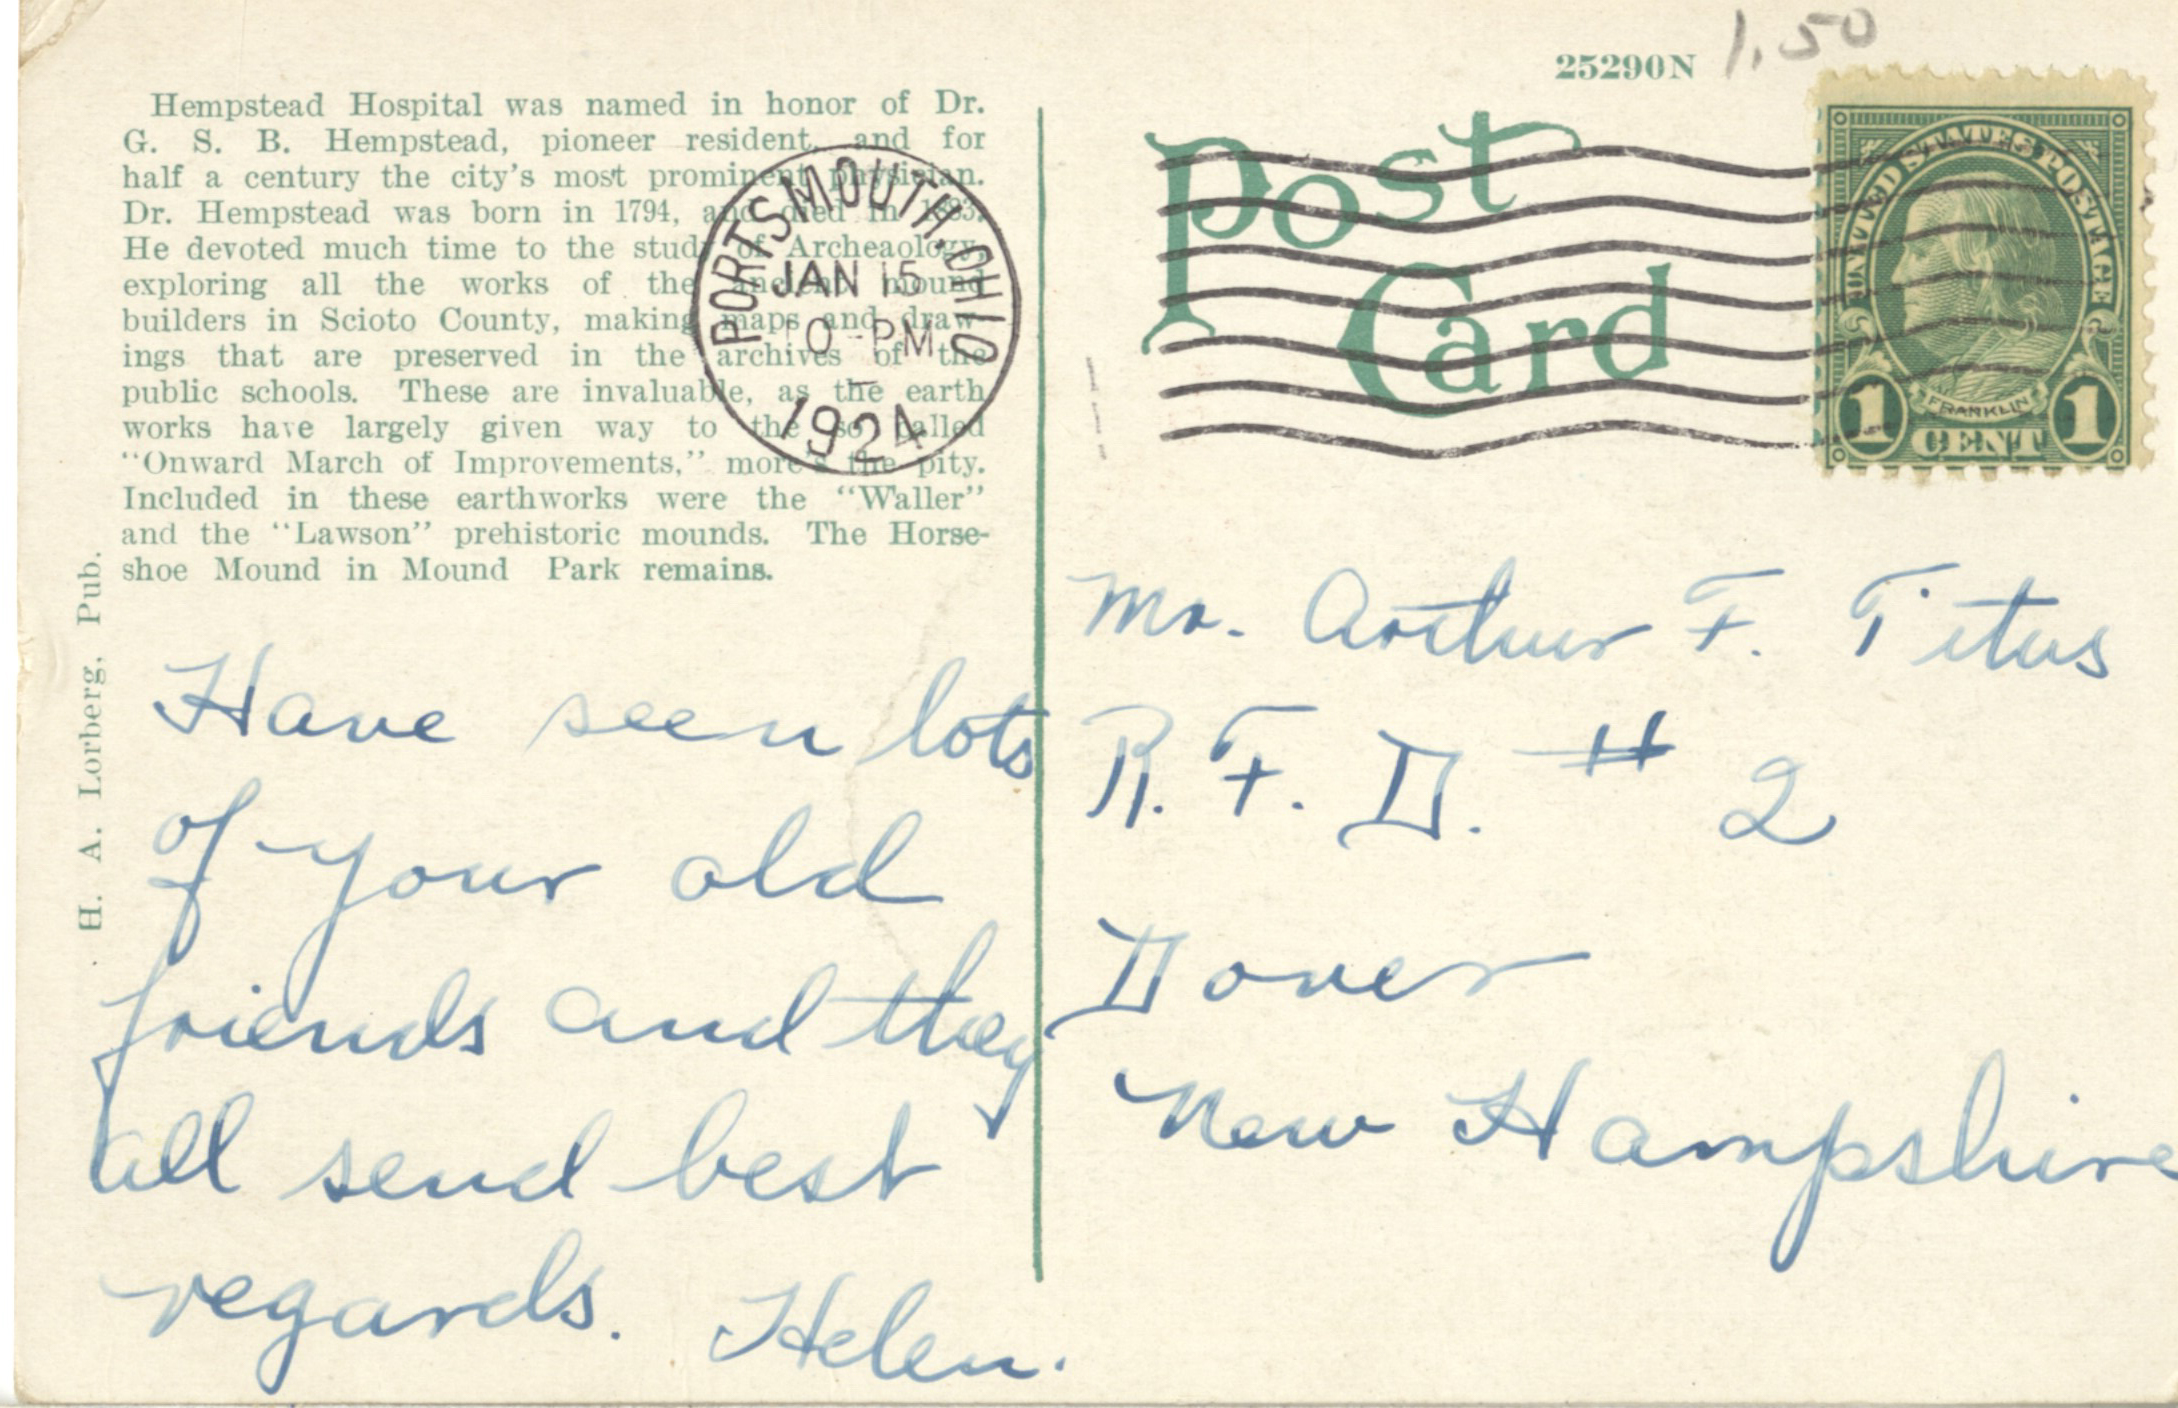 25290N
1.50
Hempstead Hospital was named in honor of Dr.
G. S. B. Hempstead, pioneer resident, and for
half a century the city's most prominent physician.
Dr. Hempstead was born in 1794, and died in 1883.
He devoted much time to the study of Archeaology,
exploring all the works of the ancient mound
builders in Scioto County, making maps and draw-
ings that are preserved in the archives of the
public schools. These are invaluable, as the earth
works have largely given way to the so called
"Onward March of Improvements," more's the pity.
Included in these earthworks were the "Waller"
and the "Lawson" prehistoric mounds. The Horse-
shoe Mound in Mound Park remains.
H. A. Lorberg, Pub.
PORTSMOUTH, OHIO
JAN 15
10-PM
1924
Post
Card
UNITED STATES POSTAGE
FRANKLIN
1 CENT 1
Have seen lots
of your old
friends and they
all send best
regards. Helen.
Mr. Arthur F. Titus
R. F. D. # 2
Dover
New Hampshire